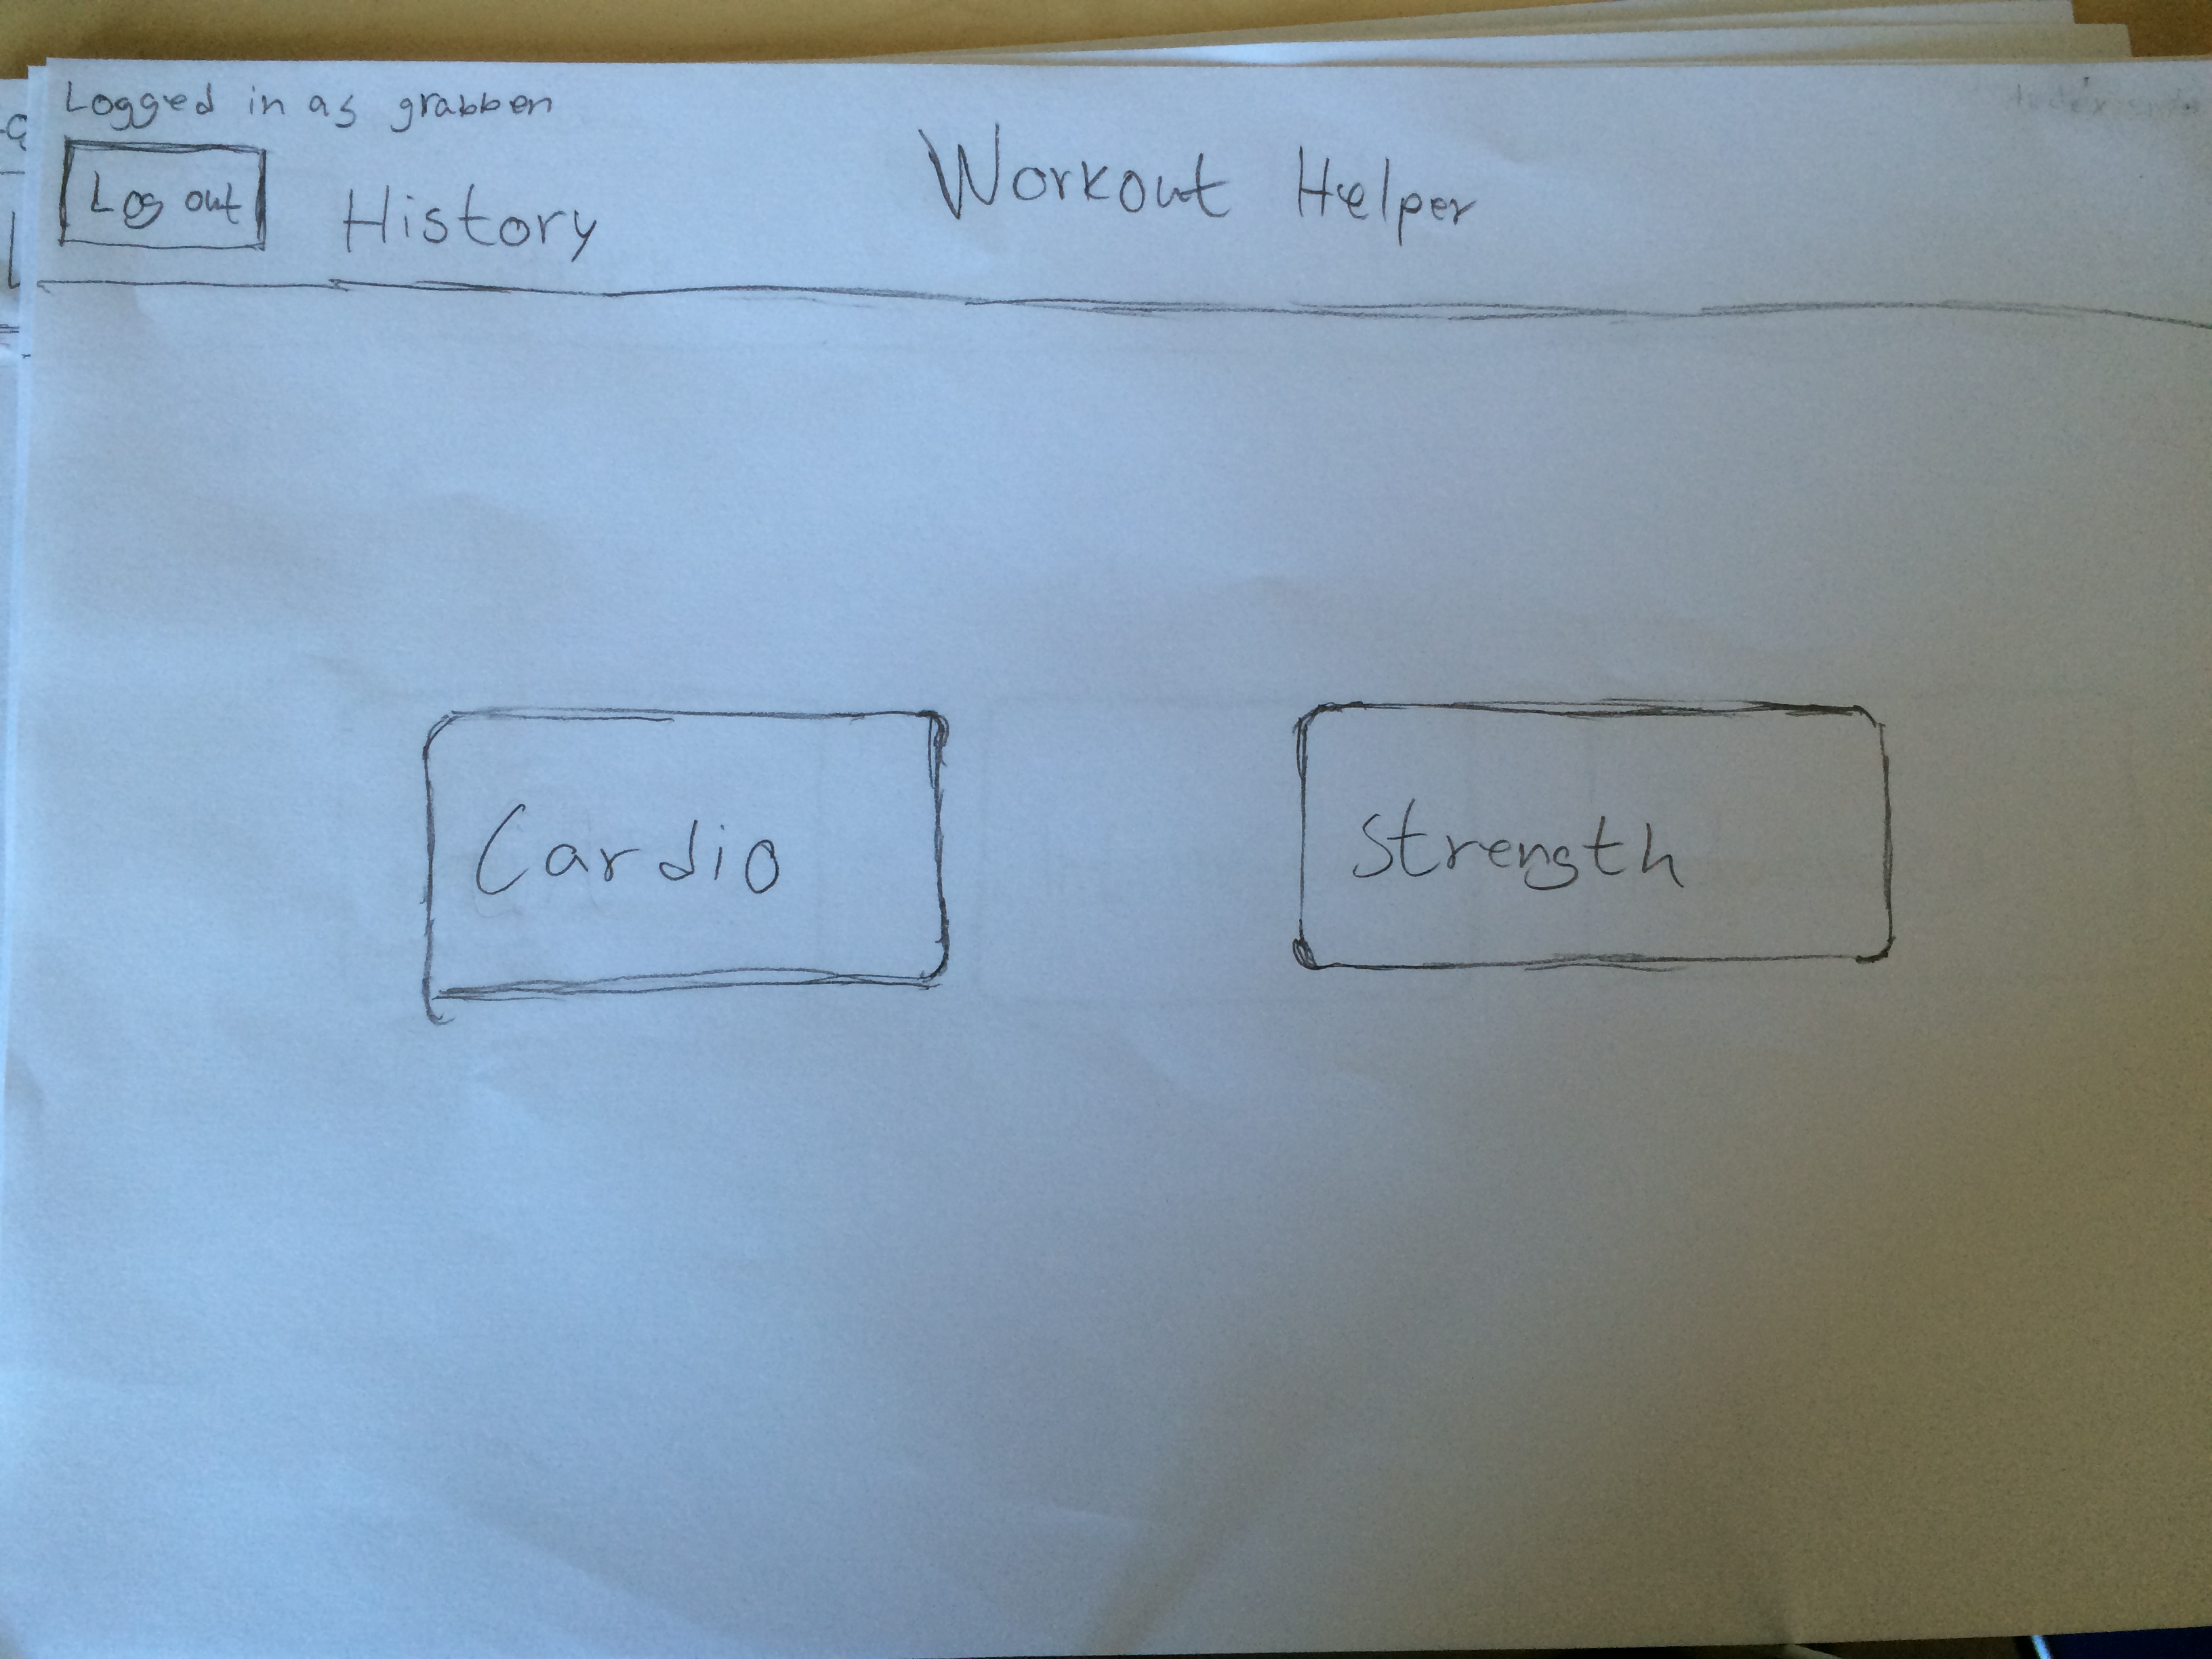 Logged in as grabben
Log out
History
Workout Helper
Cardio
Strength